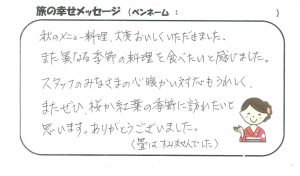 旅の幸せメッセージ（ペンネーム：　　　）
秋のメニュー料理、大変おいしくいただきました。
また異なる季節の料理を食べたいと感じました。
スタッフのみなさまの心暖かい対応もうれしく、
またぜひ、桜か紅葉の季節に訪れたいと
思います。ありがとうございました。
（畳はすみませんでした）